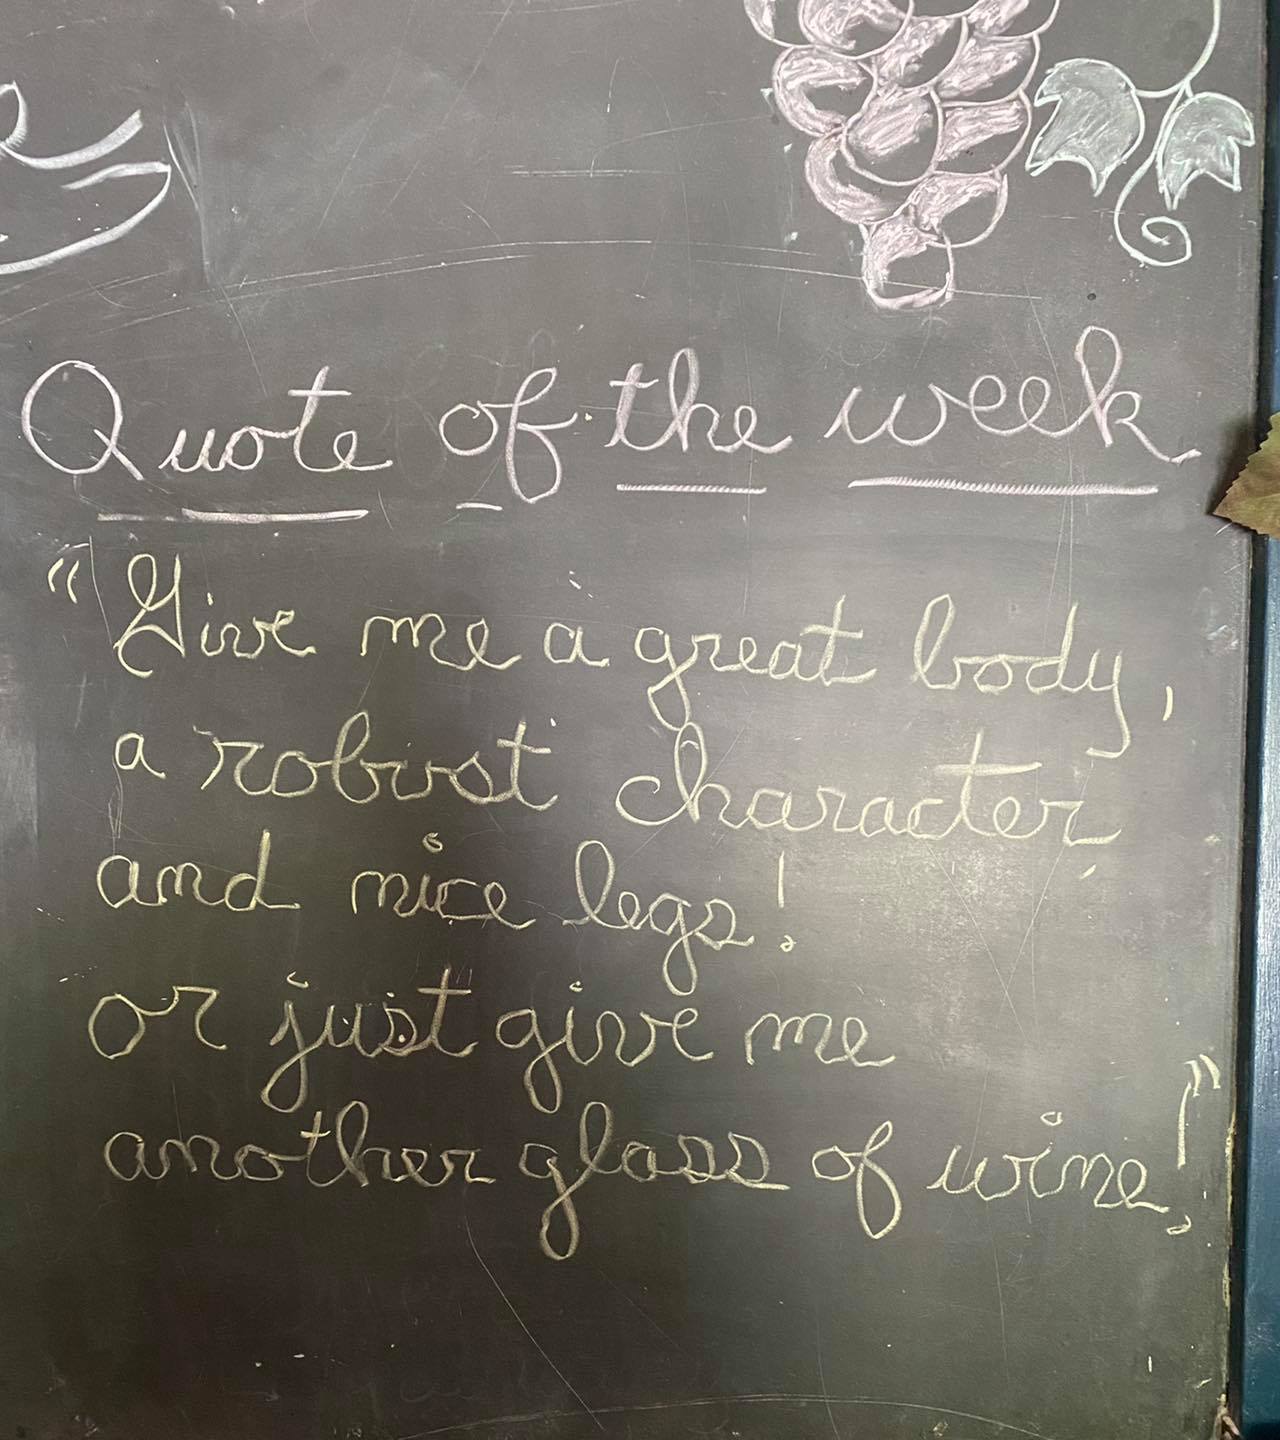 Quote of the week
"Give me a great body,
a robust character
and nice legs!
or just give me
another glass of wine!"